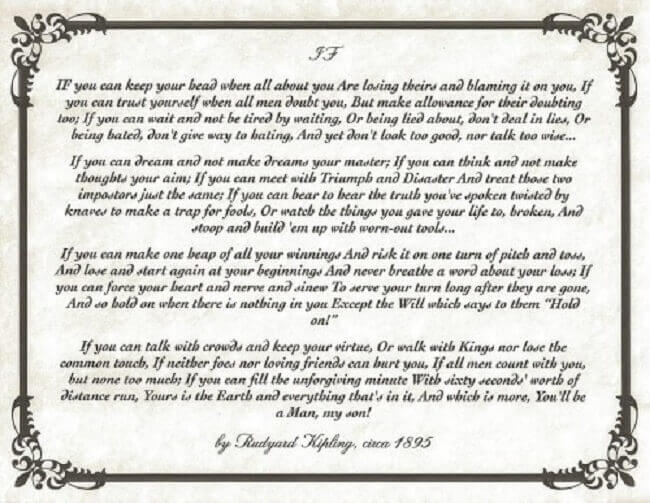 IF
IF you can keep your head when all about you Are losing theirs and blaming it on you, If
you can trust yourself when all men doubt you, But make allowance for their doubting
too; If you can wait and not be tired by waiting, Or being lied about, don't deal in lies, Or
being hated, don't give way to hating, And yet don't look too good, nor talk too wise...
If you can dream and not make dreams your master; If you can think and not make
thoughts your aim; If you can meet with Triumph and Disaster And treat those two
impostors just the same; If you can bear to hear the truth you've spoken twisted by
knaves to make a trap for fools, Or watch the things you gave your life to, broken, And
stoop and build 'em up with worn-out tools...
If you can make one heap of all your winnings And risk it on one turn of pitch and toss,
And lose and start again at your beginnings And never breathe a word about your loss; If
you can force your heart and nerve and sinew To serve your turn long after they are gone,
And so hold on when there is nothing in you Except the Will which says to them "Hold
on!"
If you can talk with crowds and keep your virtue, Or walk with Kings nor lose the
common touch, If neither foes nor loving friends can hurt you, If all men count with you,
but none too much; If you can fill the unforgiving minute With sixty seconds' worth of
distance run, Yours is the Earth and everything that's in it, And which is more, You'll be
a Man, my son!
by Rudyard Kipling, circa 1895